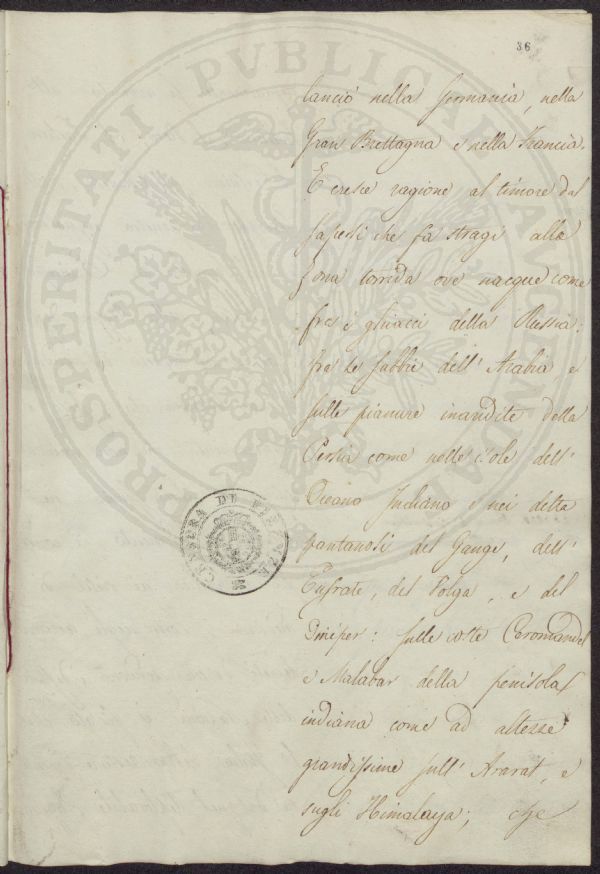 36
lanciò nella Germania, nella
Gran Brettagna e nella Francia.
E cresce ragione al timore dal
sapersi che fa stragi alla
zona torrida ove nacque come
fra i ghiacci della Russia:
fra le sabbie dell' Arabia, e
sulle pianure inaudite della
Persia come nelle isole dell'
Oceano Indiano e nei delta
pantanosi del Gange, dell'
Eufrate, del Volga, e del
Dnieper: sulle coste Coromandel
e Malabar della penisola
indiana come ad altezze
grandissime sull' Ararat, e
sugli Himalaya; che
CENSURA DI FIRENZE
PROSPERITATI PUBLICAE AUGENDAE